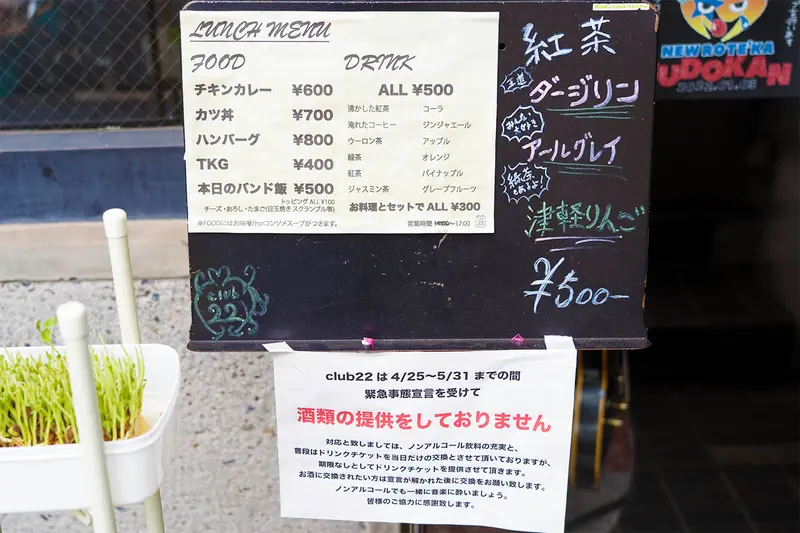 LUNCH MENU
FOOD
チキンカレー ¥600
カツ丼 ¥700
ハンバーグ ¥800
TKG ¥400
本日のバンド飯 ¥500
トッピング ALL ¥100
チーズ・おろし・たまご(目玉焼き スクランブル等)
※FOODにはお味噌汁orコンソメスープがつきます。
DRINK
ALL ¥500
沸かした紅茶 コーラ
淹れたコーヒー ジンジャエール
ウーロン茶 アップル
緑茶 オレンジ
紅茶 パイナップル
ジャスミン茶 グレープフルーツ
お料理とセットで ALL ¥300
営業時間 〜17:00
紅茶
王道
ダージリン
みんな大好き
アールグレイ
紅茶もあるよ
津軽りんご
¥500-
club 22
NEWROTE'KA
UDOKAN
club22 は 4/25〜5/31 までの間
緊急事態宣言を受けて
酒類の提供をしておりません
対応と致しましては、ノンアルコール飲料の充実と、
普段はドリンクチケットを当日だけの交換とさせて頂いておりますが、
期限なしとしてドリンクチケットを提供させて頂きます。
お酒に交換されたい方は宣言が解かれた後に交換をお願い致します。
ノンアルコールでも一緒に音楽に酔いましょう。
皆様のご協力に感謝致します。